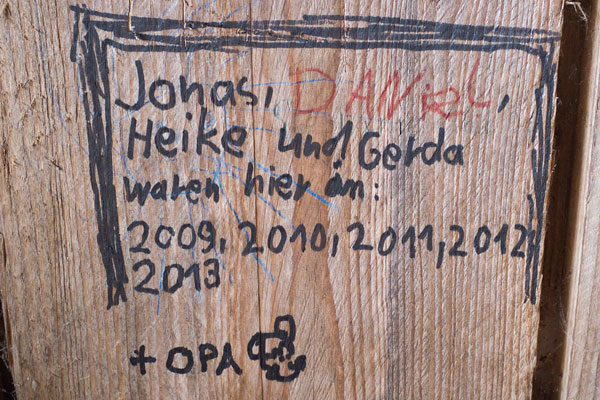 Jonas, DANieL,
Heike und Gerda
waren hier in:
2009, 2010, 2011, 2012
2013
+ OPA